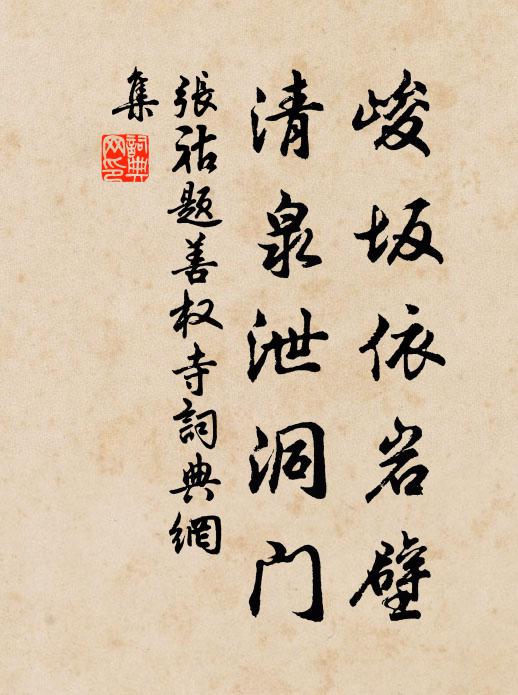 峻坂依岩壁
清泉泄洞门
張祜題善权寺詞典網
集
詞典网印